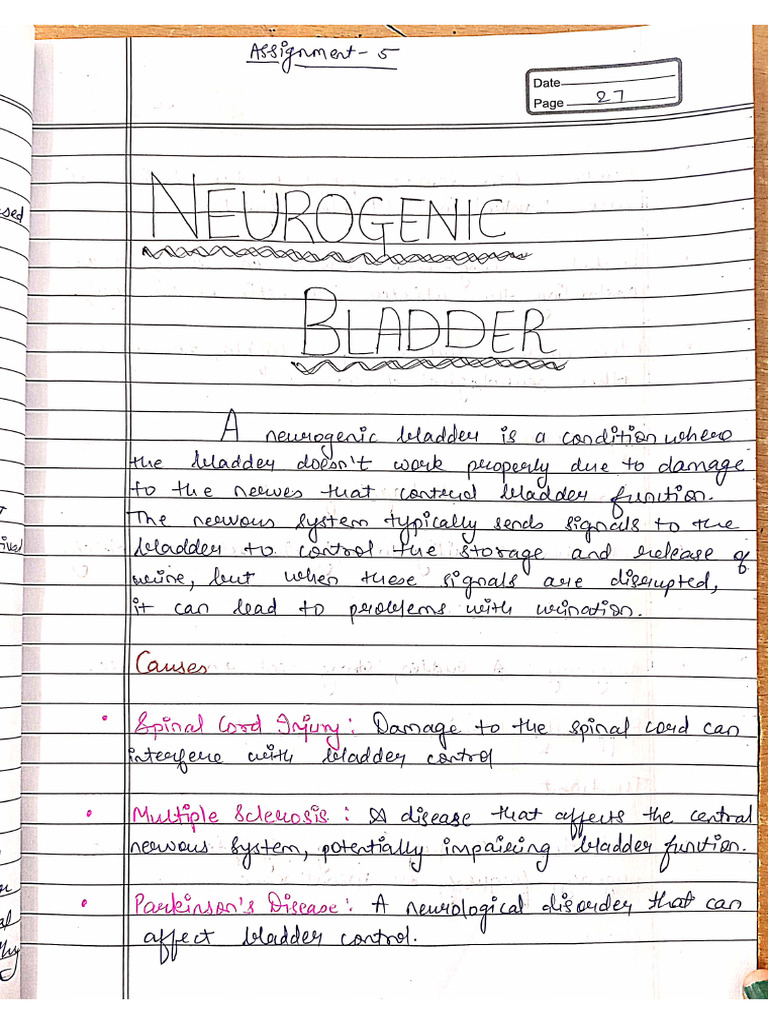 Assignment - 5
Date
Page 27
NEUROGENIC
BLADDER
A neurogenic bladder is a condition where
the bladder doesn't work properly due to damage
to the nerves that control bladder function.
The nervous system typically sends signals to the
bladder to control the storage and release of
urine, but when these signals are disrupted,
it can lead to problems with urination.
Causes
• Spinal Cord Injury: Damage to the spinal cord can
interfere with bladder control
• Multiple Sclerosis: A disease that affects the central
nervous system, potentially impairing bladder function.
• Parkinson's Disease: A neurological disorder that can
affect bladder control.